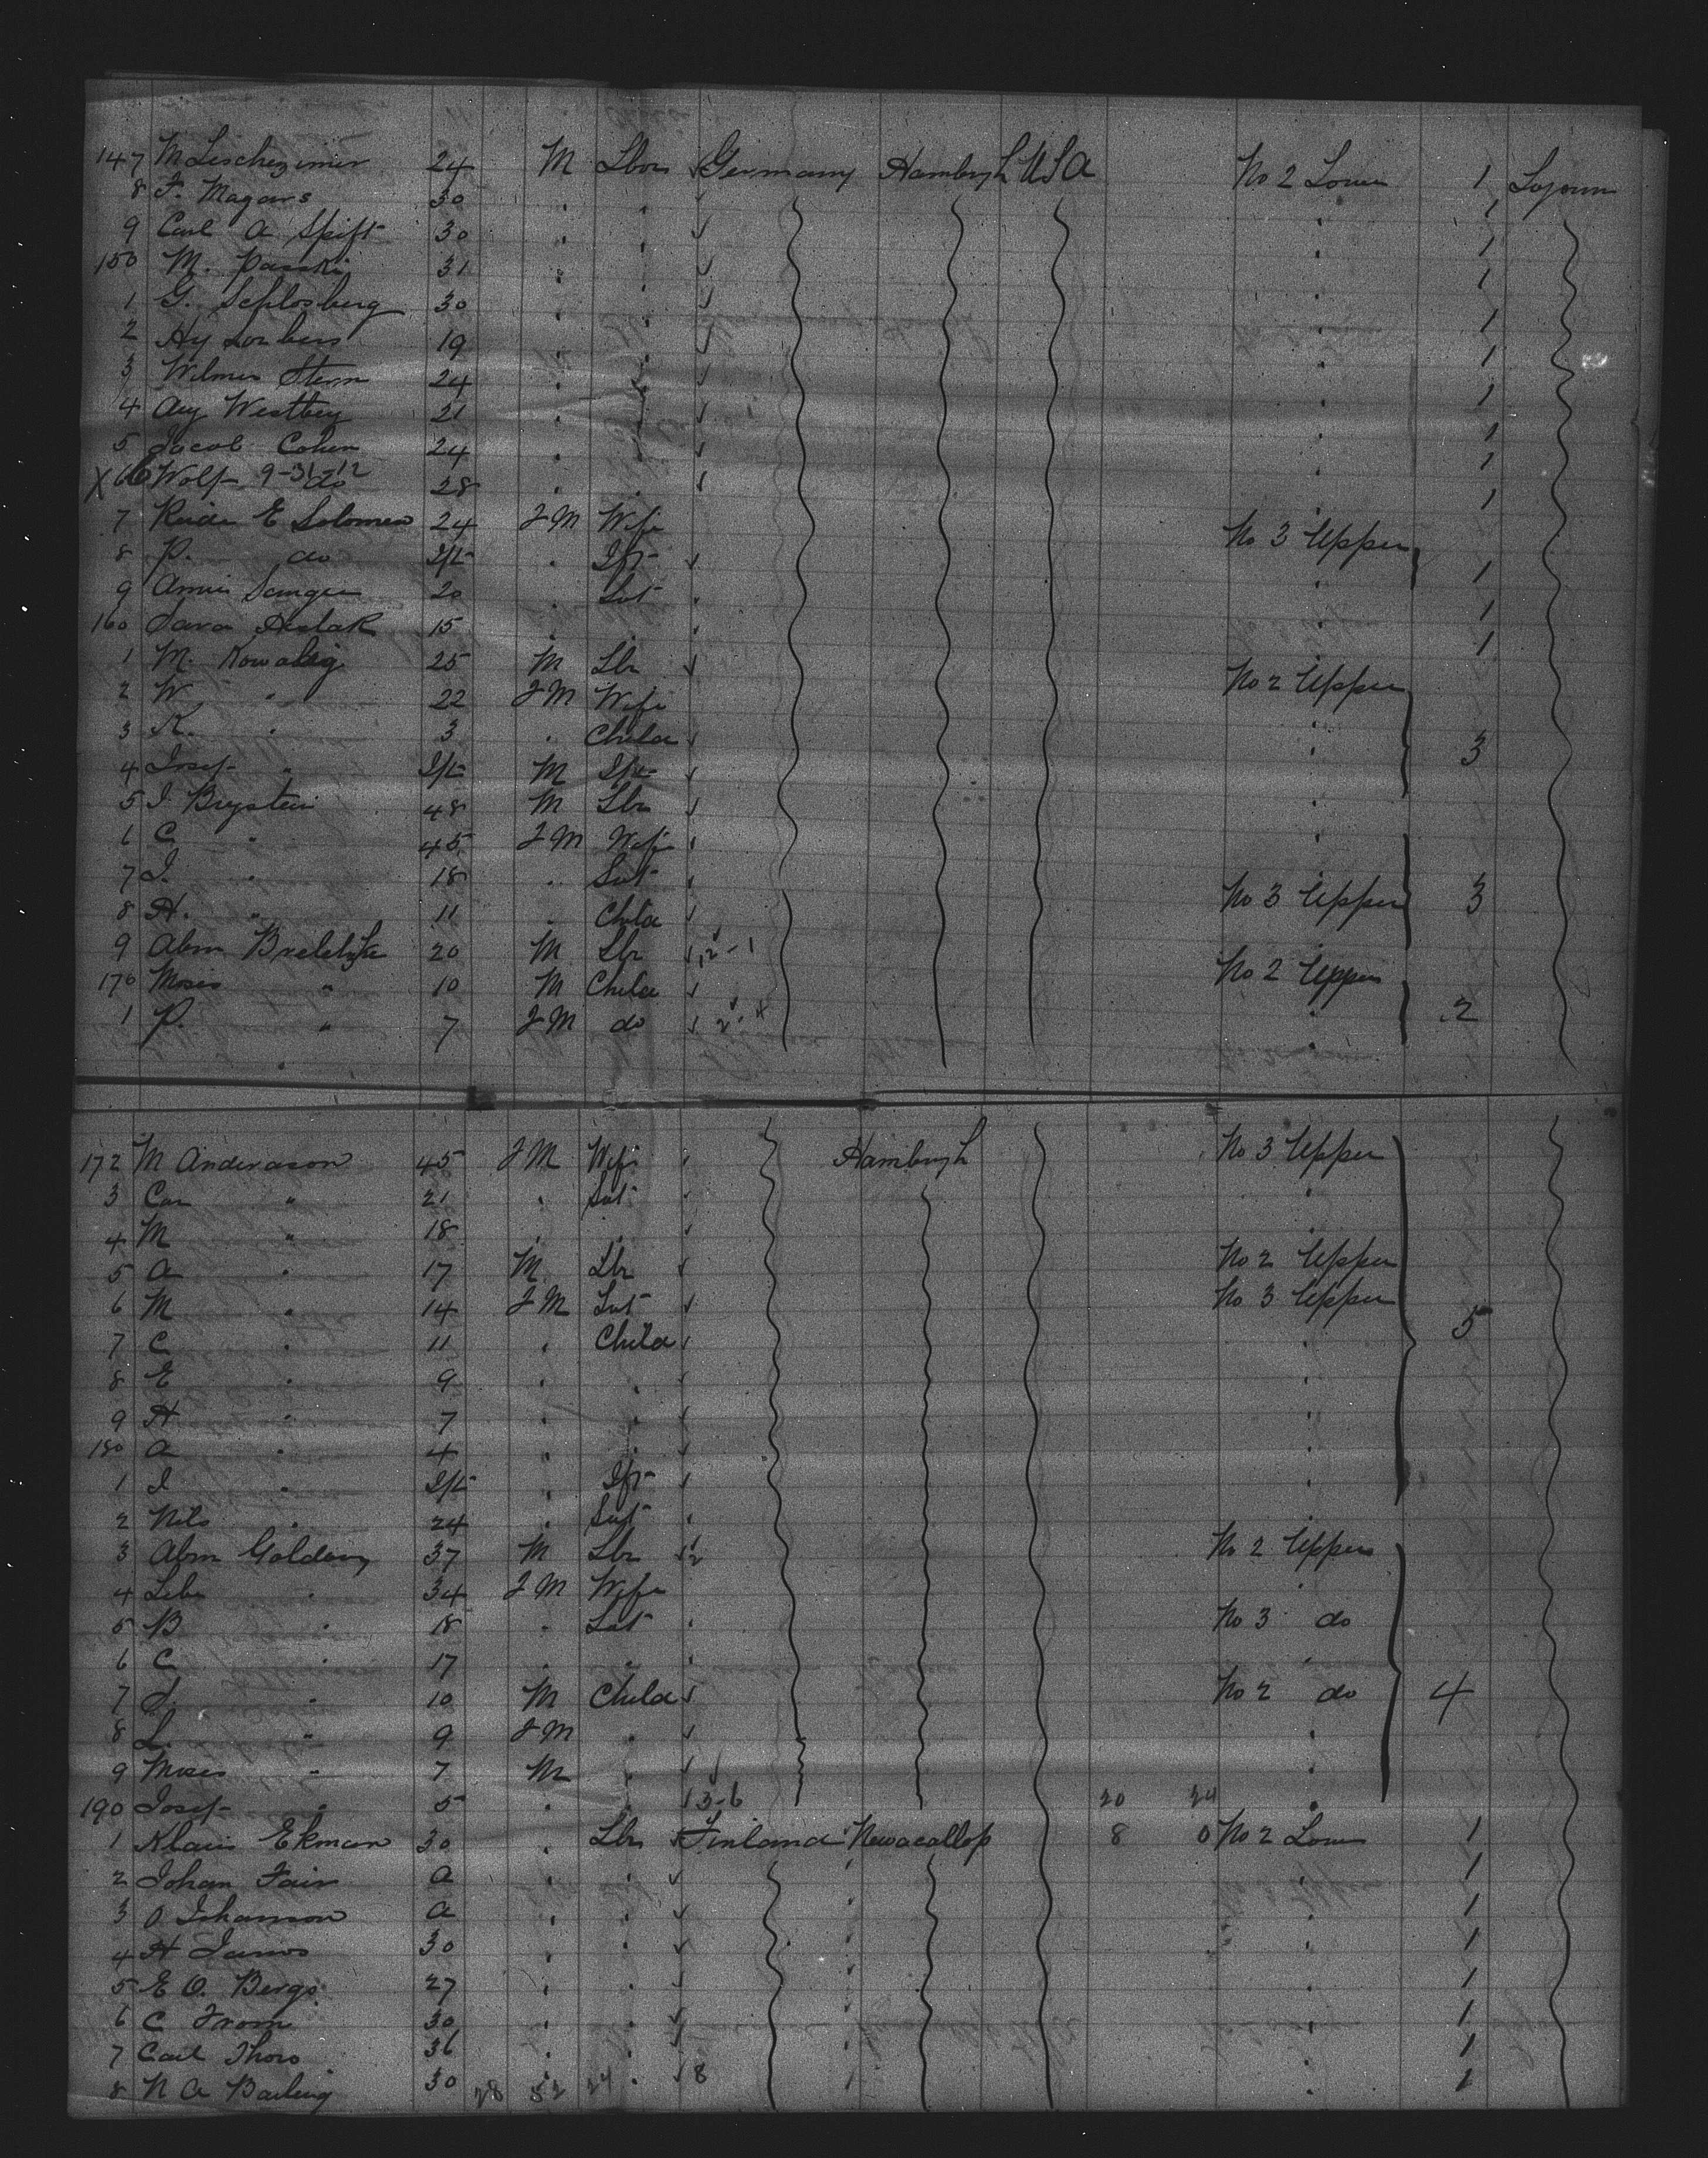 147 M Lischezimir 24 M Lbor Germany Hamburgh U S A No 2 Lower 1 Sojourn
8 F. Magars 30 " " 1
9 Carl A Spift 30 " " 1
150 M. 31 " " 1
1 G. Schlosberg 30 " " 1
2 Hy 19 " " 1
3 Wilmer Stern 24 " " 1
4 Aug Westbey 21 " " 1
5 Jacob Cohen 24 " " 1
X 66 Wolf 9-31-12 do 28 " " 1
7 E Solomen 24 F M Wife No 3 Upper
8 P. do Ift " Ift 1
9 Annie 20 " Svt " 1
160 Sara 15 " " " 1
1 M. Kowalsig 25 M Lbr
2 W " 22 F M Wife No 2 Upper
3 K. " 3 " Child " 3
4 Josef " Ift M Ift
5 I Brystein 48 M Lbr "
6 C " 45 F M Wife "
7 I. " 18 " Svt
8 H. " 11 " Child No 3 Upper 3
9 Abm 20 M Lbr 12-1
170 Moses " 10 M Child No 2 Upper
1 P. " 7 F M do 2-4 " 2
172 M Anderason 45 F M Wife Hamburgh No 3 Upper
3 Car " 21 " Svt "
4 M " 18 " " "
5 A " 17 M Lbr No 2 Upper
6 M " 14 F M Svt No 3 Upper
7 C " 11 " Child " 5
8 E " 9 " " "
9 H " 7 " " "
180 A " 4 " " "
1 I " Ift " Ift "
2 Nils " 24 " Svt
3 Abm 37 M Lbr 12 No 2 Upper
4 " 34 F M Wife "
5 B " 18 " Svt No 3 do
6 C " 17 " " "
7 " 10 M Child No 2 do 4
8 L. " 9 F M " "
9 Moses " 7 M " "
190 Josef " 5 " 13-6 20 24 "
1 Klais Ekman 30 " Lbr Finland 8 0 No 2 Lower 1
2 Johan Fair A " " " 1
3 O Johanson A " " " 1
4 H 30 " " " 1
5 E O. Bergs 27 " " " 1
6 C From 30 " " " 1
7 Carl Thors 36 " " " 1
8 N A Barling 30 28 52 24 " 8 " 1